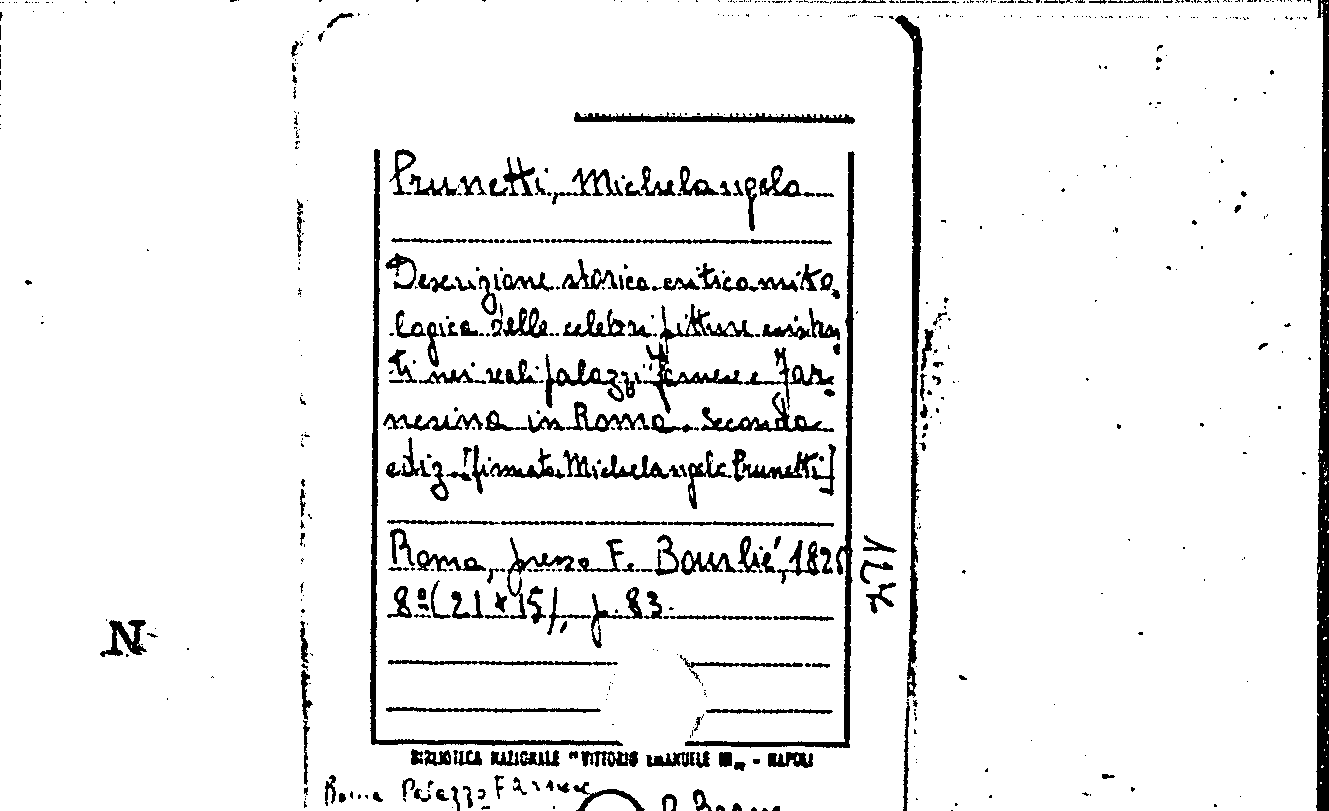 Prunetti, Michelangelo
Descrizione storica critica mito-
logica delle celebri pitture esisten-
ti nei reali palazzi Farnese e Far-
nesina in Roma. Seconda
ediz. [firmato Michelangelo Prunetti]
Roma, presso F. Bourlié, 182
8º (21 x 15), p. 83.
BIBLIOTECA NAZIONALE "VITTORIO EMANUELE III„ - NAPOLI
Roma Palazzo Farnese
N